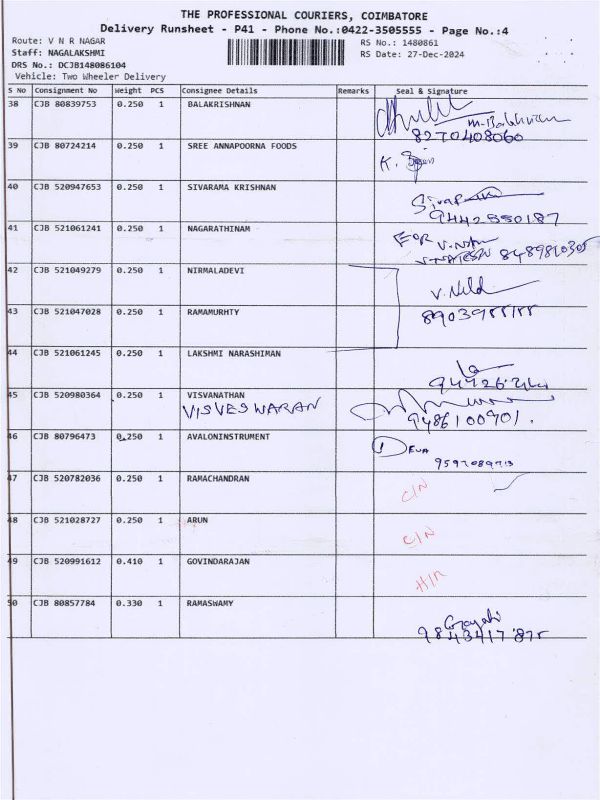 THE PROFESSIONAL COURIERS, COIMBATORE
Delivery Runsheet - P41 - Phone No.:0422-3505555 - Page No.:4
Route: V N R NAGAR RS No.: 1480861
Staff: NAGALAKSHMI RS Date: 27-Dec-2024
DRS No.: DCJB148086104
Vehicle: Two Wheeler Delivery
S No Consignment No Weight PCS Consignee Details Remarks Seal & Signature
38 CJB 80839753 0.250 1 BALAKRISHNAN
8270408060
39 CJB 80724214 0.250 1 SREE ANNAPOORNA FOODS
K.
40 CJB 520947653 0.250 1 SIVARAMA KRISHNAN
9442550187
41 CJB 521061241 0.250 1 NAGARATHINAM
FOR
8489810305
42 CJB 521049279 0.250 1 NIRMALADEVI
43 CJB 521047028 0.250 1 RAMAMURHTY
44 CJB 521061245 0.250 1 LAKSHMI NARASHIMAN
45 CJB 520980364 0.250 1 VISVANATHAN
VISVESWARAN
9486100901.
46 CJB 80796473 0.250 1 AVALONINSTRUMENT
47 CJB 520782036 0.250 1 RAMACHANDRAN
C/N
48 CJB 521028727 0.250 1 ARUN
C/N
49 CJB 520991612 0.410 1 GOVINDARAJAN
50 CJB 80857784 0.330 1 RAMASWAMY